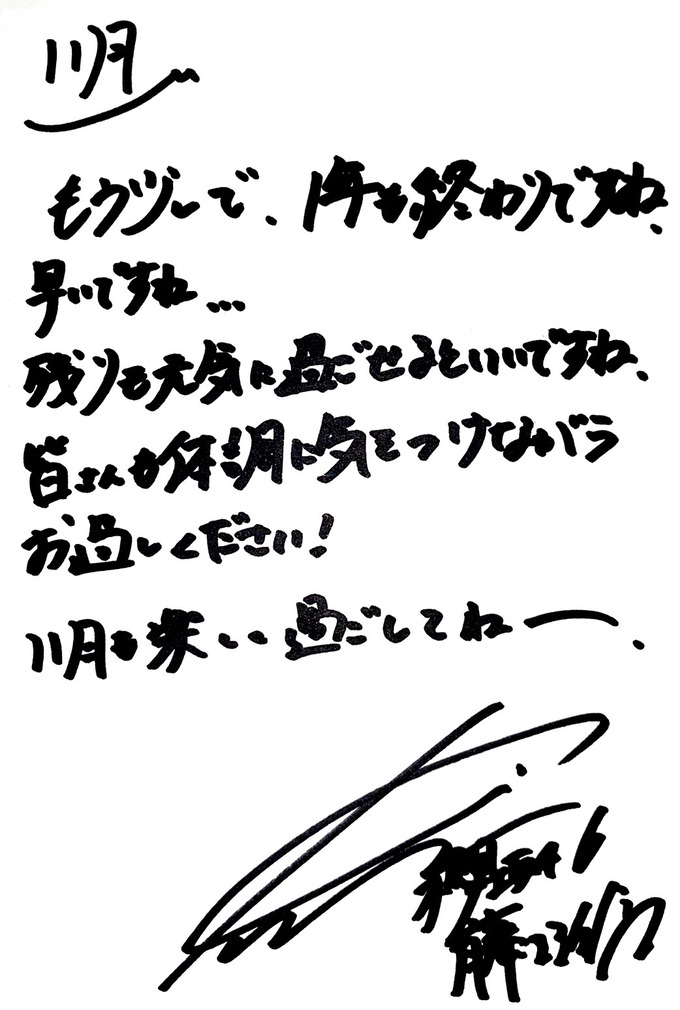 11月
もう少しで、1年も終わりですね、
早いですね…
残りも元気に過ごせるといいですね、
皆さんも体調に気をつけながら
お過しください!
11月も楽しく過ごしてねー.